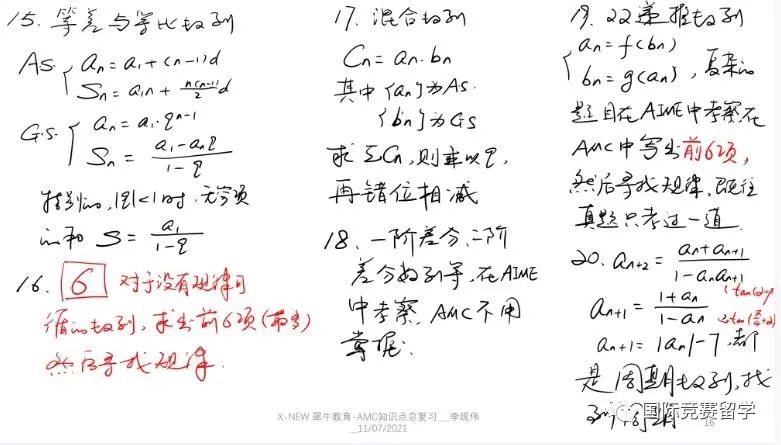 15. 等差与等比数列
AS. { an = a1 + (n-1)d
Sn = a1n + n(n-1)/2 d
G.S. { an = a1·q^(n-1)
Sn = (a1 - anq)/(1-q)
特别的, |q|<1时, 无穷项
的和 S = a1/(1-q)
16. 6 对于没有规律可
循的数列, 求出前6项(最多)
然后寻找规律.
17. 混合数列
Cn = an·bn
其中{an}为AS.
{bn}为GS
求ΣCn, 则乘以q,
再错位相减
18. 一阶差分、二阶
差分数列等, 在AIME
中考察, AMC不用
掌握.
19. 双递推数列
{ an = f(bn)
bn = g(an) , 复杂的
题目在AIME中考察在
AMC中写出前6项,
然后寻找规律, 既往
真题只考过一道.
20. an+2 = (an + an+1)/(1 - an an+1)
tan(α+β)
an+1 = (1+an)/(1-an)
tan(π/4+α)
an+1 = |an| - 7, 都
是周期数列, 找
到周期
国际竞赛留学
X-NEW 犀牛教育-AMC知识点总复习__李现伟
_11/07/2021
16